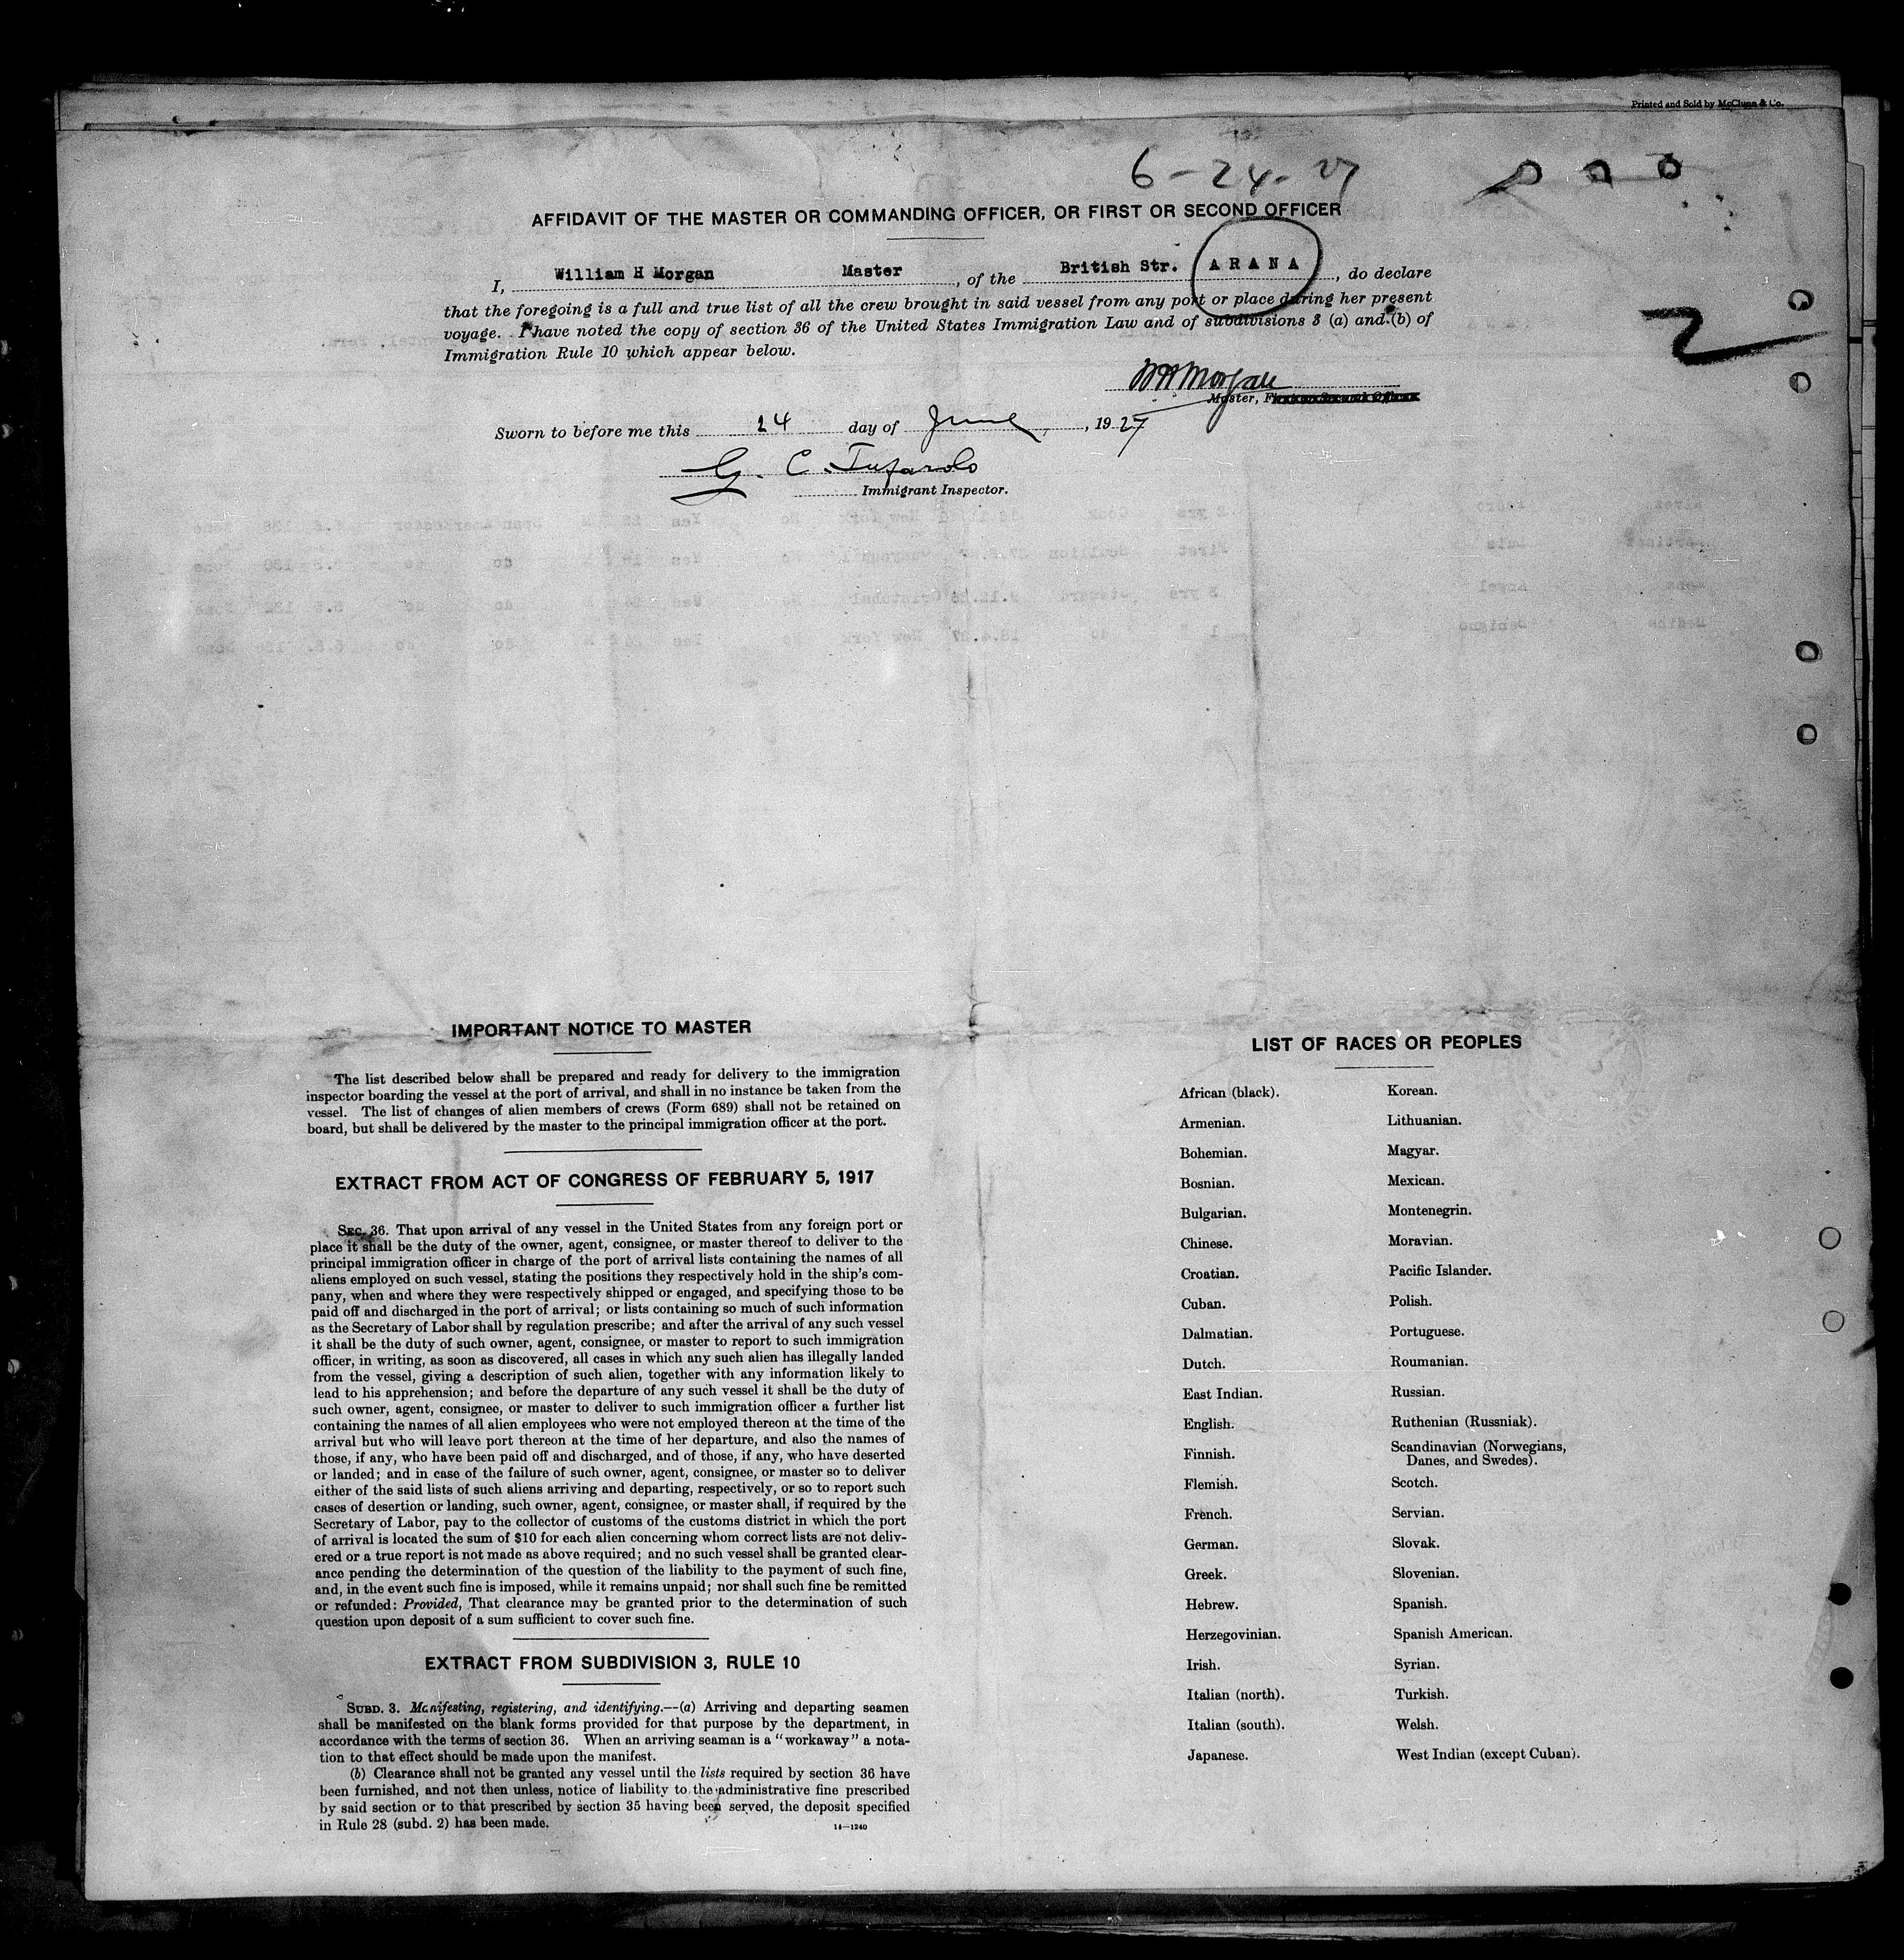 Printed and Sold by McClunn & Co.
6-24-27
AFFIDAVIT OF THE MASTER OR COMMANDING OFFICER, OR FIRST OR SECOND OFFICER
I, William H Morgan Master, of the British Str. ARANA, do declare
that the foregoing is a full and true list of all the crew brought in said vessel from any port or place during her present
voyage. I have noted the copy of section 36 of the United States Immigration Law and of subdivisions 3 (a) and (b) of
Immigration Rule 10 which appear below.
WH Morgan
Master, First or Second Officer
Sworn to before me this 24 day of June, 1927
G. C. Tufarolo
Immigrant Inspector.
2
IMPORTANT NOTICE TO MASTER
The list described below shall be prepared and ready for delivery to the immigration
inspector boarding the vessel at the port of arrival, and shall in no instance be taken from the
vessel. The list of changes of alien members of crews (Form 689) shall not be retained on
board, but shall be delivered by the master to the principal immigration officer at the port.
EXTRACT FROM ACT OF CONGRESS OF FEBRUARY 5, 1917
SEC. 36. That upon arrival of any vessel in the United States from any foreign port or
place it shall be the duty of the owner, agent, consignee, or master thereof to deliver to the
principal immigration officer in charge of the port of arrival lists containing the names of all
aliens employed on such vessel, stating the positions they respectively hold in the ship's com-
pany, when and where they were respectively shipped or engaged, and specifying those to be
paid off and discharged in the port of arrival; or lists containing so much of such information
as the Secretary of Labor shall by regulation prescribe; and after the arrival of any such vessel
it shall be the duty of such owner, agent, consignee, or master to report to such immigration
officer, in writing, as soon as discovered, all cases in which any such alien has illegally landed
from the vessel, giving a description of such alien, together with any information likely to
lead to his apprehension; and before the departure of any such vessel it shall be the duty of
such owner, agent, consignee, or master to deliver to such immigration officer a further list
containing the names of all alien employees who were not employed thereon at the time of the
arrival but who will leave port thereon at the time of her departure, and also the names of
those, if any, who have been paid off and discharged, and of those, if any, who have deserted
or landed; and in case of the failure of such owner, agent, consignee, or master so to deliver
either of the said lists of such aliens arriving and departing, respectively, or so to report such
cases of desertion or landing, such owner, agent, consignee, or master shall, if required by the
Secretary of Labor, pay to the collector of customs of the customs district in which the port
of arrival is located the sum of $10 for each alien concerning whom correct lists are not deliv-
ered or a true report is not made as above required; and no such vessel shall be granted clear-
ance pending the determination of the question of the liability to the payment of such fine,
and, in the event such fine is imposed, while it remains unpaid; nor shall such fine be remitted
or refunded: Provided, That clearance may be granted prior to the determination of such
question upon deposit of a sum sufficient to cover such fine.
EXTRACT FROM SUBDIVISION 3, RULE 10
SUBD. 3. Manifesting, registering, and identifying.--(a) Arriving and departing seamen
shall be manifested on the blank forms provided for that purpose by the department, in
accordance with the terms of section 36. When an arriving seaman is a "workaway" a nota-
tion to that effect should be made upon the manifest.
(b) Clearance shall not be granted any vessel until the lists required by section 36 have
been furnished, and not then unless, notice of liability to the administrative fine prescribed
by said section or to that prescribed by section 35 having been served, the deposit specified
in Rule 28 (subd. 2) has been made.
14—1240
LIST OF RACES OR PEOPLES
African (black).
Armenian.
Bohemian.
Bosnian.
Bulgarian.
Chinese.
Croatian.
Cuban.
Dalmatian.
Dutch.
East Indian.
English.
Finnish.
Flemish.
French.
German.
Greek.
Hebrew.
Herzegovinian.
Irish.
Italian (north).
Italian (south).
Japanese.
Korean.
Lithuanian.
Magyar.
Mexican.
Montenegrin.
Moravian.
Pacific Islander.
Polish.
Portuguese.
Roumanian.
Russian.
Ruthenian (Russniak).
Scandinavian (Norwegians,
Danes, and Swedes).
Scotch.
Servian.
Slovak.
Slovenian.
Spanish.
Spanish American.
Syrian.
Turkish.
Welsh.
West Indian (except Cuban).